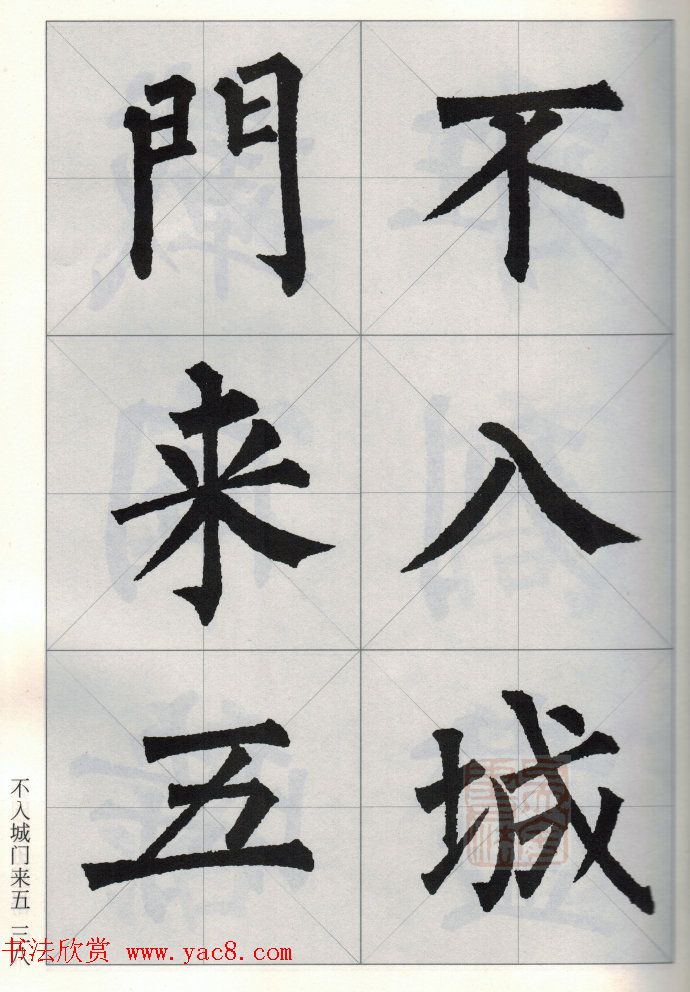 不入城
門来五
不入城门来五
书法欣赏 www.yac8.com